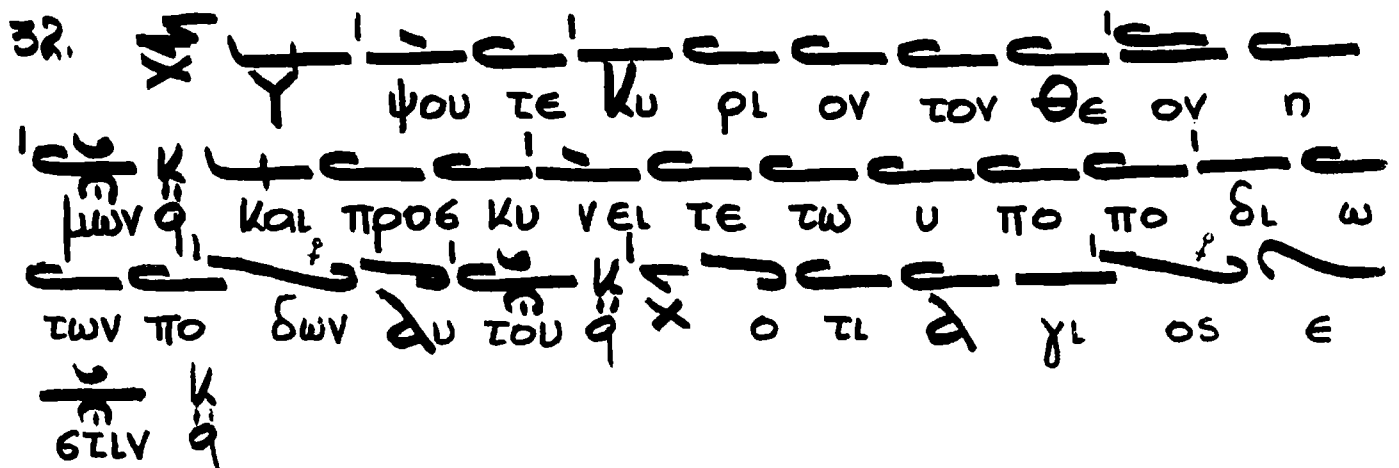 32. Υ ψου τε Κυ ρι ον τον Θε ον η
μων κ q και προσ κυ νει τε τω υ πο πο δι ω
των πο δων αυ του κ q ο τι α γι ος ε
στιν κ q